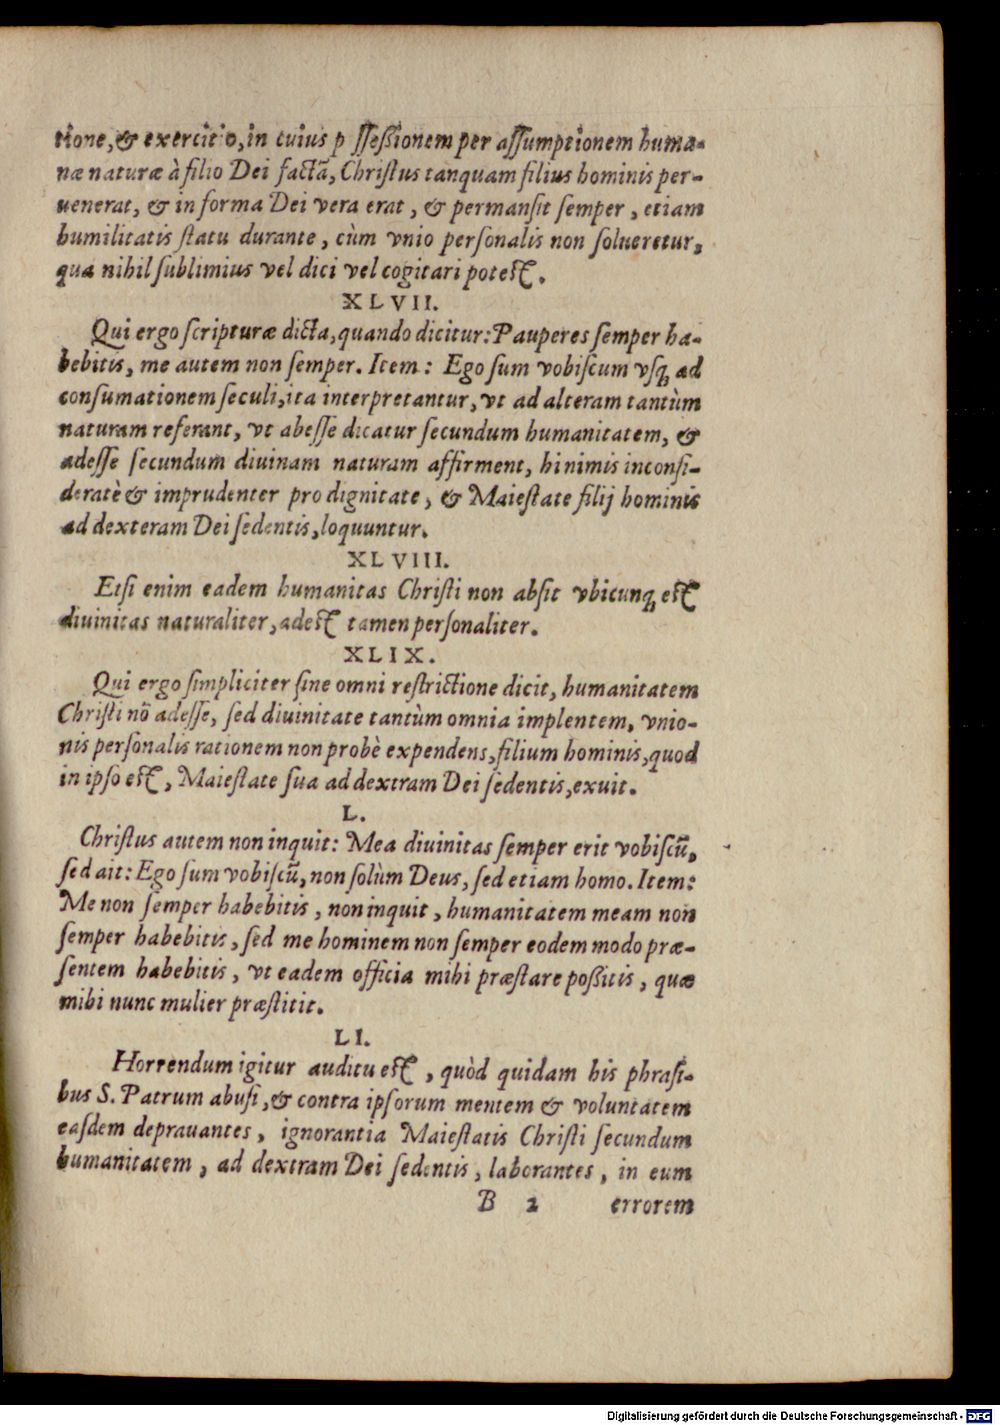 tione, & exercitio, in cuius p ssessionem per assumptionem huma-
næ naturæ à filio Dei factā, Christus tanquam filius hominis per-
uenerat, & in forma Dei vera erat, & permansit semper, etiam
humilitatis statu durante, cùm vnio personalis non solueretur,
qua nihil sublimius vel dici vel cogitari potest.
XLVII.
Qui ergo scripturæ dicta, quando dicitur: Pauperes semper ha-
bebitis, me autem non semper. Item: Ego sum vobiscum vsq; ad
consumationem seculi, ita interpretantur, vt ad alteram tantùm
naturam referant, vt abesse dicatur secundum humanitatem, &
adesse secundum diuinam naturam affirment, hi nimis inconsi-
deratè & imprudenter pro dignitate, & Maiestate filij hominis
ad dexteram Dei sedentis, loquuntur.
XLVIII.
Etsi enim eadem humanitas Christi non absit vbicunq; est
diuinitas naturaliter, adest tamen personaliter.
XLIX.
Qui ergo simpliciter sine omni restrictione dicit, humanitatem
Christi nō adesse, sed diuinitate tantùm omnia implentem, vnio-
nis personalis rationem non probè expendens, filium hominis, quod
in ipso est, Maiestate sua ad dextram Dei sedentis, exuit.
L.
Christus autem non inquit: Mea diuinitas semper erit vobiscū,
sed ait: Ego sum vobiscū, non solùm Deus, sed etiam homo. Item:
Me non semper habebitis, non inquit, humanitatem meam non
semper habebitis, sed me hominem non semper eodem modo præ-
sentem habebitis, vt eadem officia mihi præstare possitis, quæ
mihi nunc mulier præstitit.
LI.
Horrendum igitur auditu est, quòd quidam his phrasi-
bus S. Patrum abusi, & contra ipsorum mentem & voluntatem
easdem deprauantes, ignorantia Maiestatis Christi secundum
humanitatem, ad dextram Dei sedentis, laborantes, in eum
B 2 errorem
Digitalisierung gefördert durch die Deutsche Forschungsgemeinschaft - DFG